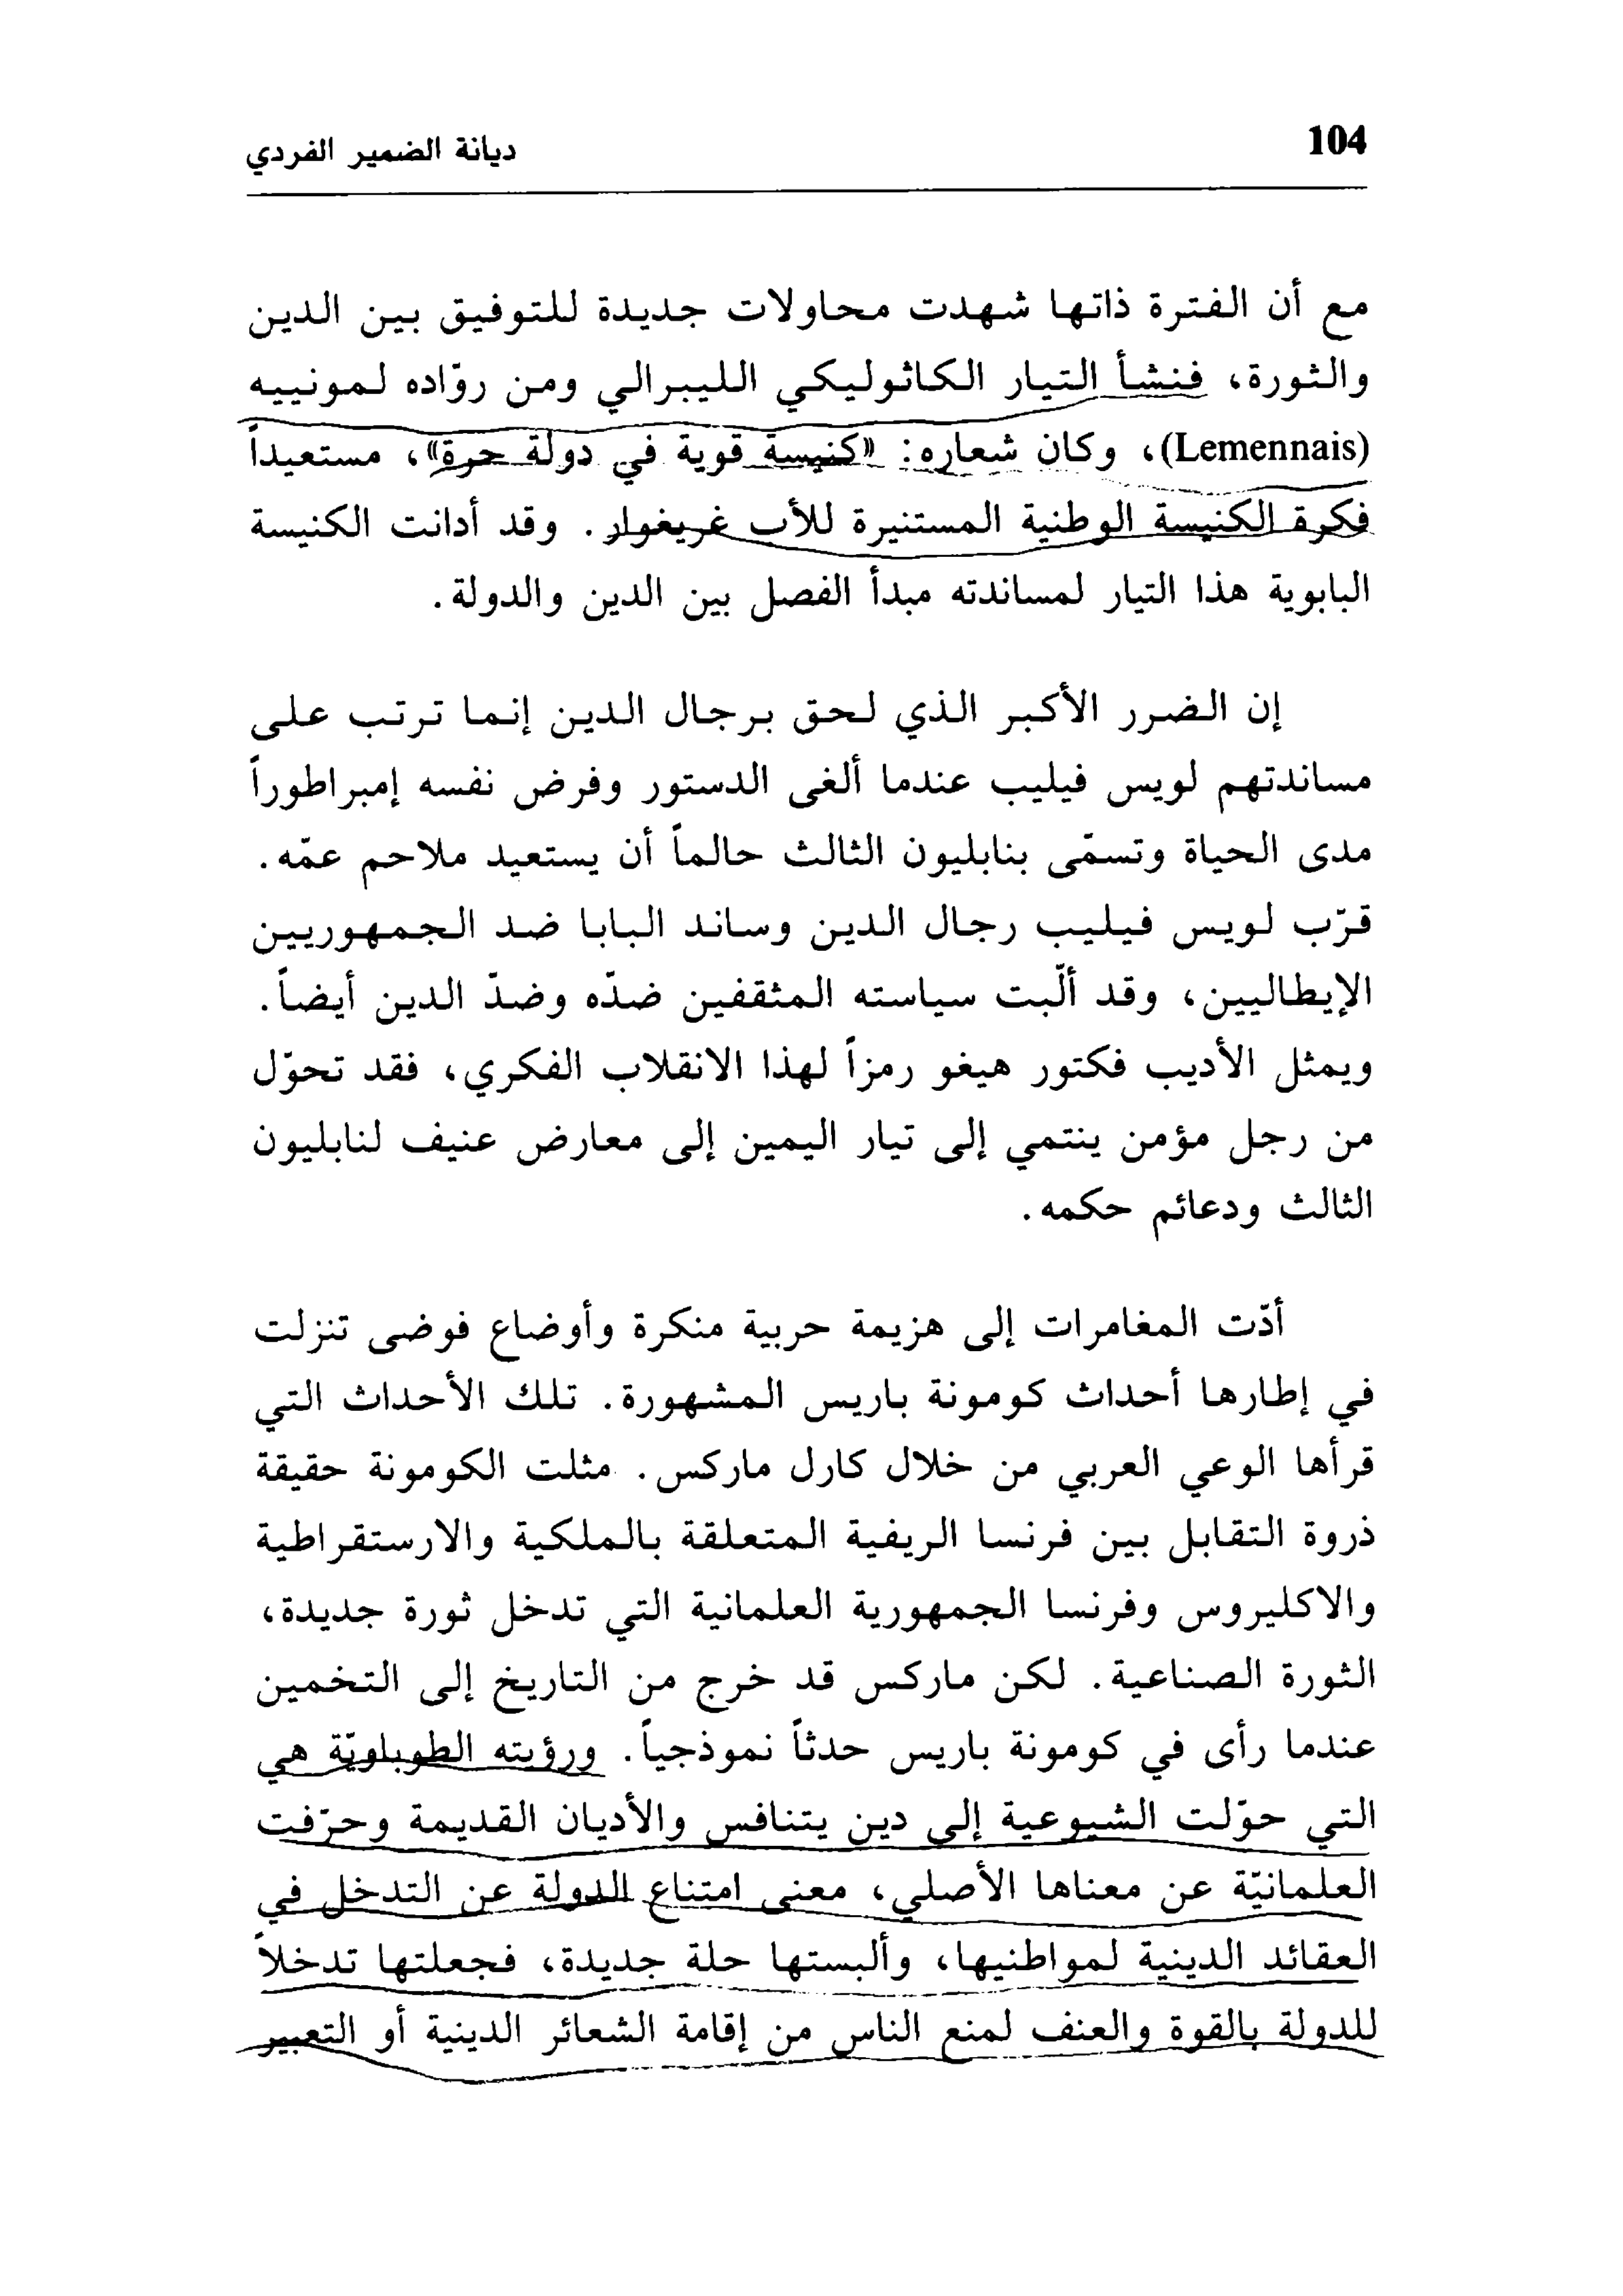 104
ديانة الضمير الفردي
مع أن الفترة ذاتها شهدت محاولات جديدة للتوفيق بين الدين
والثورة، فنشأ التيار الكاثوليكي الليبرالي ومن روّاده لمونييه
(Lemennais)، وكان شعاره: «كنيسة قوية في دولة حرة»، مستعيداً
فكرة الكنيسة الوطنية المستنيرة للأب غريغوار. وقد أدانت الكنيسة
البابوية هذا التيار لمساندته مبدأ الفصل بين الدين والدولة.
إن الضرر الأكبر الذي لحق برجال الدين إنما ترتب على
مساندتهم لويس فيليب عندما ألغى الدستور وفرض نفسه إمبراطوراً
مدى الحياة وتسمّى بنابليون الثالث حالماً أن يستعيد ملاحم عمّه.
قرّب لويس فيليب رجال الدين وساند البابا ضد الجمهوريين
الإيطاليين، وقد ألّبت سياسته المثقفين ضدّه وضدّ الدين أيضاً.
ويمثل الأديب فكتور هيغو رمزاً لهذا الانقلاب الفكري، فقد تحوّل
من رجل مؤمن ينتمي إلى تيار اليمين إلى معارض عنيف لنابليون
الثالث ودعائم حكمه.
أدّت المغامرات إلى هزيمة حربية منكرة وأوضاع فوضى تنزلت
في إطارها أحداث كومونة باريس المشهورة. تلك الأحداث التي
قرأها الوعي العربي من خلال كارل ماركس. مثلت الكومونة حقيقة
ذروة التقابل بين فرنسا الريفية المتعلقة بالملكية والارستقراطية
والاكليروس وفرنسا الجمهورية العلمانية التي تدخل ثورة جديدة،
الثورة الصناعية. لكن ماركس قد خرج من التاريخ إلى التخمين
عندما رأى في كومونة باريس حدثاً نموذجياً. ورؤيته الطوباويّة هي
التي حوّلت الشيوعية إلى دين يتنافس والأديان القديمة وحرّفت
العلمانيّة عن معناها الأصلي، معنى امتناع الدولة عن التدخل في
العقائد الدينية لمواطنيها، وألبستها حلة جديدة، فجعلتها تدخلاً
للدولة بالقوة والعنف لمنع الناس من إقامة الشعائر الدينية أو التعبير